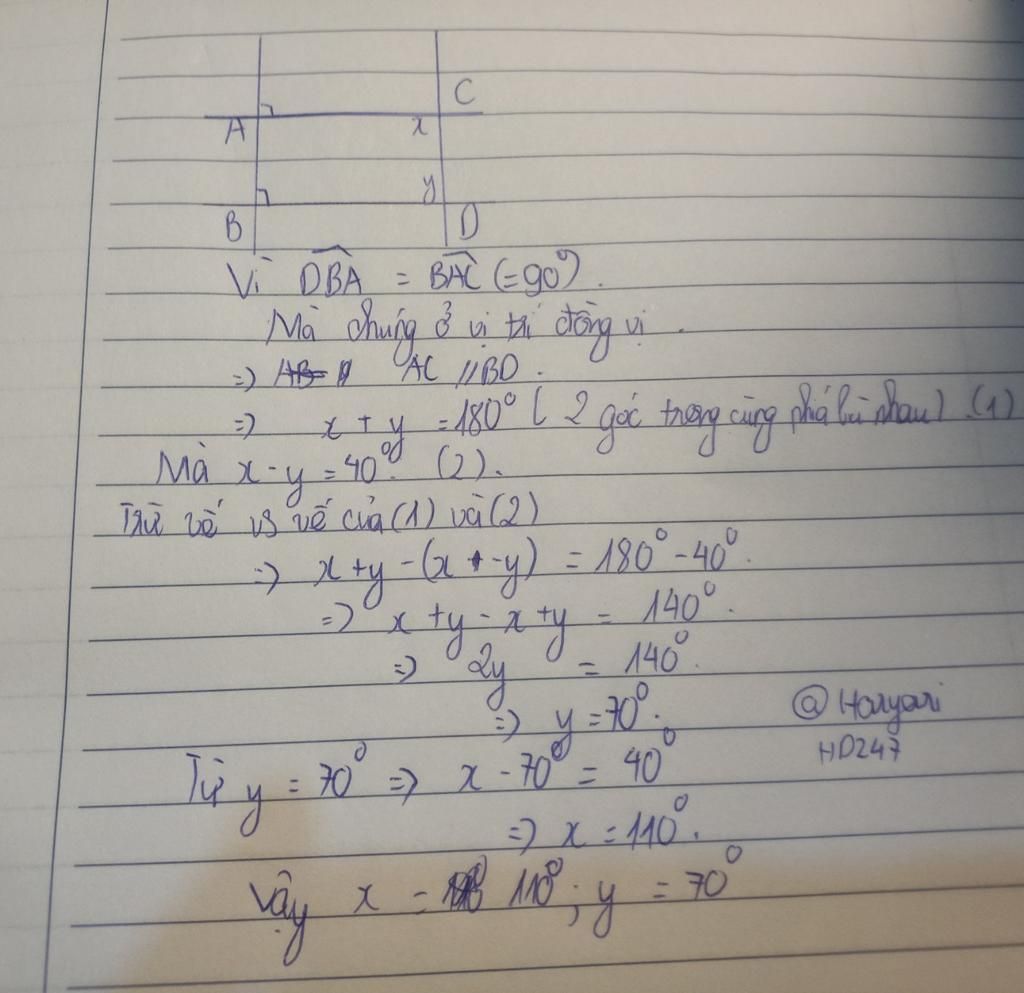 A
x
C
B
y
D
Vì DBA = BAC (=90°).
Mà chúng ở vị trí đồng vị.
=> AC // BD.
=> x + y = 180° ( 2 góc trong cùng phía bù nhau). (1)
Mà x - y = 40°. (2).
Trừ vế vs vế của (1) và (2)
=> x + y - (x - y) = 180° - 40°.
=> x + y - x + y = 140°.
=> 2y = 140°.
=> y = 70°.
@Haryari
HD247
Từ y = 70° => x - 70° = 40°
=> x = 110°.
Vậy x = 110°; y = 70°